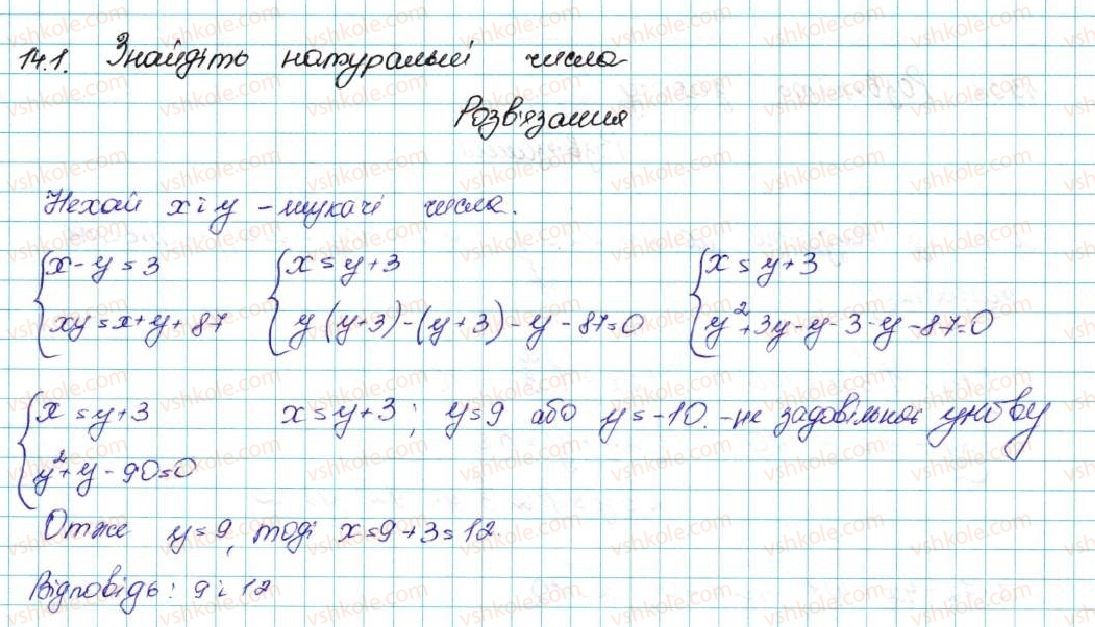 14.1. Знайдіть натуральні числа
Розв'язання
Нехай x і y – шукані числа.
{x - y = 3 {x = y + 3 {x = y + 3
xy = x + y + 87 y(y+3) - (y+3) - y - 87 = 0 y² + 3y - y - 3 - y - 87 = 0
{x = y + 3 x = y + 3; y = 9 або y = -10. – не задовільняє умову
y² + y - 90 = 0
Отже y = 9, тоді x = 9 + 3 = 12.
Відповідь: 9 і 12